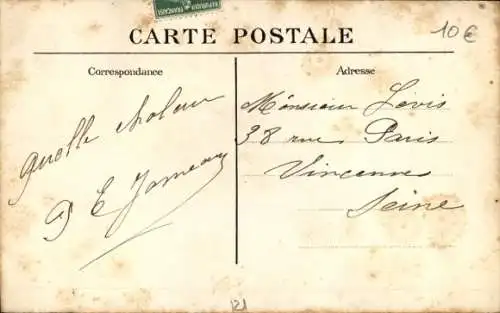 CARTE POSTALE
10€
Correspondance
Adresse
Quelle chaleur
E Jameau
Monsieur Levis
38 rue Paris
Vincennes
Seine
121